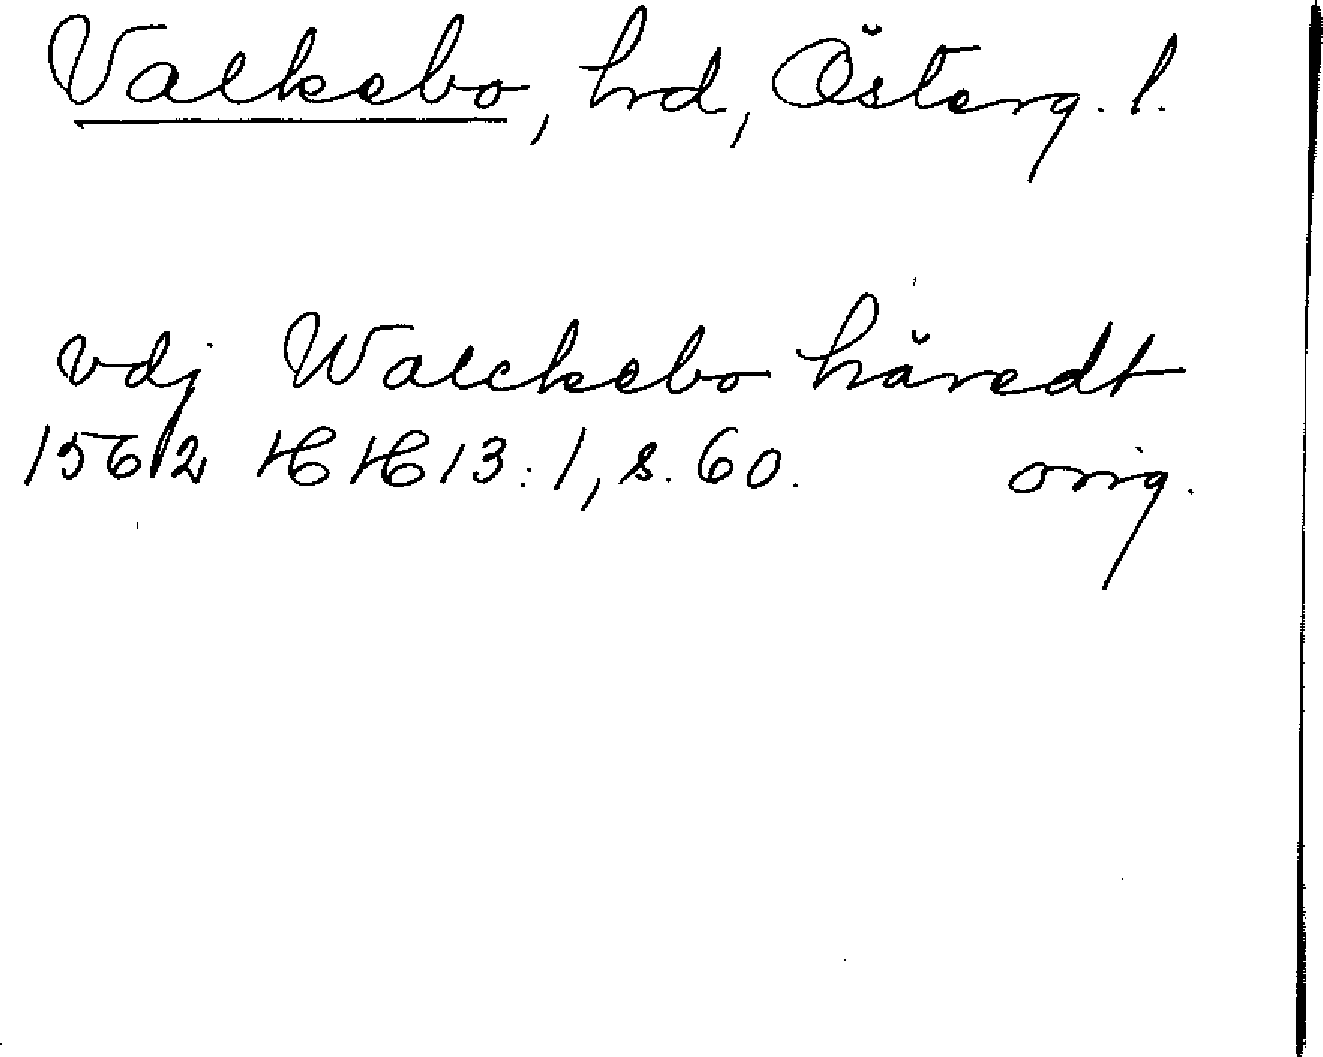 Valkebo, hrd, Österg. l.
vdj Walckebo häredt
1562 HH 13:1, s. 60. orig.